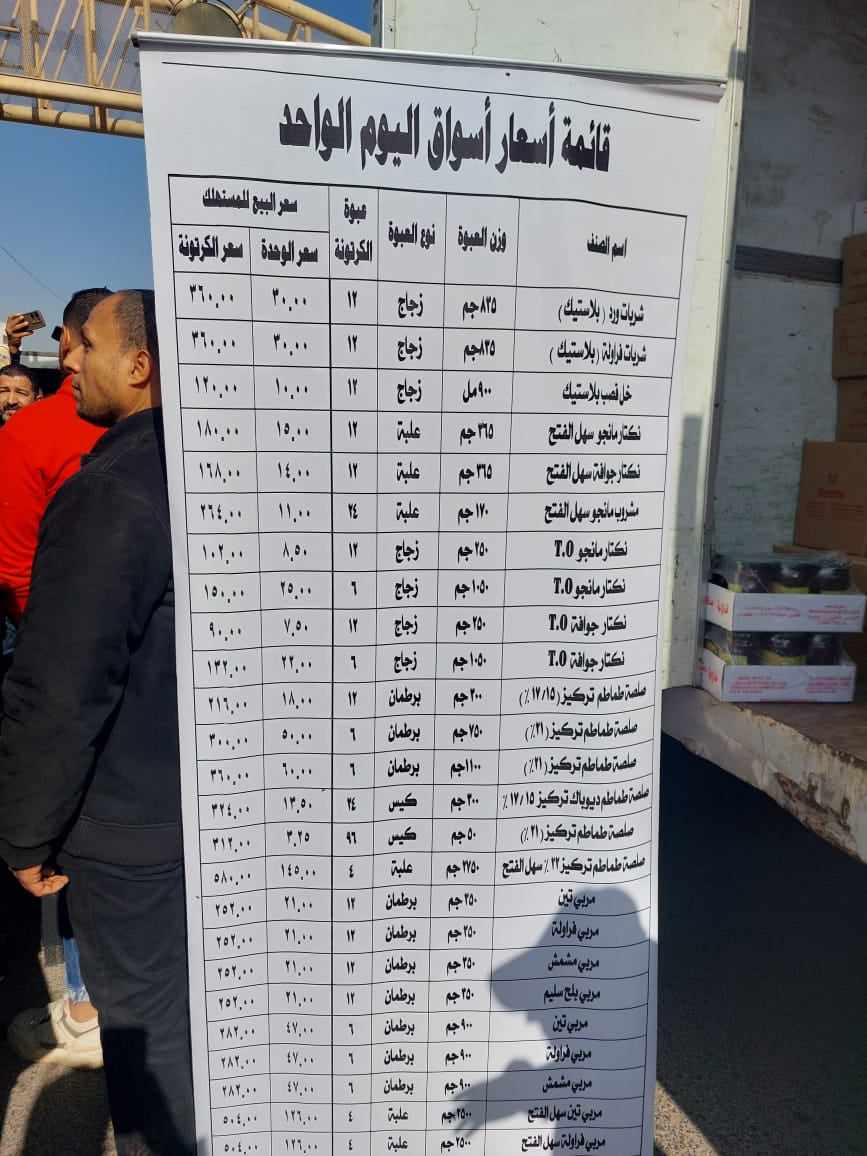 قائمة أسعار أسواق اليوم الواحد
اسم الصنف وزن العبوة نوع العبوة عبوة الكرتونة سعر البيع للمستهلك
سعر الوحدة سعر الكرتونة
شربات ورد (بلاستيك) ٨٢٥جم زجاج ١٢ ٣٠,٠٠ ٣٦٠,٠٠
شربات فراولة (بلاستيك) ٨٢٥جم زجاج ١٢ ٣٠,٠٠ ٣٦٠,٠٠
خل قصب بلاستيك ٩٠٠مل زجاج ١٢ ١٠,٠٠ ١٢٠,٠٠
نكتار مانجو سهل الفتح ٣٦٥ جم علبة ١٢ ١٥,٠٠ ١٨٠,٠٠
نكتار جوافة سهل الفتح ٣٦٥ جم علبة ١٢ ١٤,٠٠ ١٦٨,٠٠
مشروب مانجو سهل الفتح ١٧٠ جم علبة ٢٤ ١١,٠٠ ٢٦٤,٠٠
نكتار مانجو T.O ٢٥٠ جم زجاج ١٢ ٨,٥٠ ١٠٢,٠٠
نكتار مانجو T.O ١٠٥٠ جم زجاج ٦ ٢٥,٠٠ ١٥٠,٠٠
نكتار جوافة T.O ٢٥٠ جم زجاج ١٢ ٧,٥٠ ٩٠,٠٠
نكتار جوافة T.O ١٠٥٠ جم زجاج ٦ ٢٢,٠٠ ١٣٢,٠٠
صلصة طماطم تركيز (١٧/١٥٪) ٢٠٠ جم برطمان ١٢ ١٨,٠٠ ٢١٦,٠٠
صلصة طماطم تركيز (٢١٪) ٧٥٠ جم برطمان ٦ ٥٠,٠٠ ٣٠٠,٠٠
صلصة طماطم تركيز (٢١٪) ١١٠٠ جم برطمان ٦ ٦٠,٠٠ ٣٦٠,٠٠
صلصة طماطم ديوباك تركيز ١٧/١٥٪ ٣٠٠ جم كيس ٢٤ ١٣,٥٠ ٣٢٤,٠٠
صلصة طماطم تركيز (٢١٪) ٥٠ جم كيس ٩٦ ٣,٢٥ ٣١٢,٠٠
صلصة طماطم تركيز ٢٢٪ سهل الفتح ٢٧٥٠ جم علبة ٤ ١٤٥,٠٠ ٥٨٠,٠٠
مربي تين ٣٥٠ جم برطمان ١٢ ٢١,٠٠ ٢٥٢,٠٠
مربي فراولة ٣٥٠ جم برطمان ١٢ ٢١,٠٠ ٢٥٢,٠٠
مربي مشمش ٣٥٠ جم برطمان ١٢ ٢١,٠٠ ٢٥٢,٠٠
مربي بلح سليم ٣٥٠ جم برطمان ١٢ ٢١,٠٠ ٢٥٢,٠٠
مربي تين ٩٠٠ جم برطمان ٦ ٤٧,٠٠ ٢٨٢,٠٠
مربي فراولة ٩٠٠ جم برطمان ٦ ٤٧,٠٠ ٢٨٢,٠٠
مربي مشمش ٩٠٠ جم برطمان ٦ ٤٧,٠٠ ٢٨٢,٠٠
مربي تين سهل الفتح ٢٥٠٠ جم علبة ٤ ١٢٦,٠٠ ٥٠٤,٠٠
مربي فراولة سهل الفتح ٢٥٠٠ جم علبة ٤ ١٢٦,٠٠ ٥٠٤,٠٠